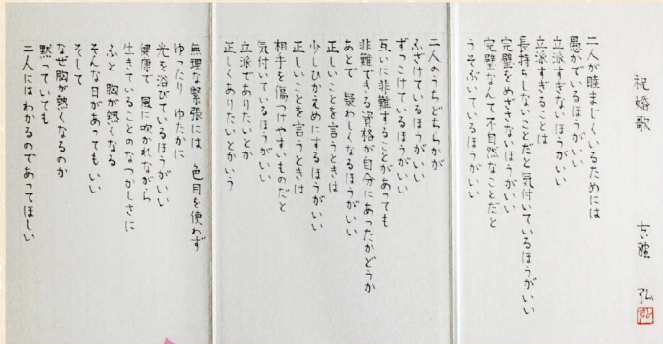 祝婚歌
吉野 弘
弘
二人が睦まじくいるためには
愚かでいるほうがいい
立派すぎないほうがいい
立派すぎることは
長持ちしないことだと気付いているほうがいい
完璧をめざさないほうがいい
完璧なんて不自然なことだと
うそぶいているほうがいい
二人のうちどちらかが
ふざけているほうがいい
ずっこけているほうがいい
互いに非難することがあっても
非難できる資格が自分にあったかどうか
あとで 疑わしくなるほうがいい
正しいことを言うときは
少しひかえめにするほうがいい
正しいことを言うときは
相手を傷つけやすいものだと
気付いているほうがいい
立派でありたいとか
正しくありたいとかいう
無理な緊張には 色目を使わず
ゆったり ゆたかに
光を浴びているほうがいい
健康で 風に吹かれながら
生きていることのなつかしさに
ふと 胸が熱くなる
そんな日があってもいい
そして
なぜ胸が熱くなるのか
黙っていても
二人にはわかるのであってほしい